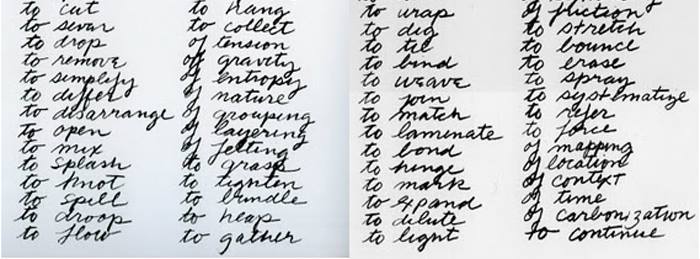 to cut
to sever
to drop
to remove
to simplify
to differ
to disarrange
to open
to mix
to splash
to knot
to spill
to droop
to flow
to hang
to collect
of tension
of gravity
of entropy
of nature
of grouping
of layering
of felting
to grasp
to tighten
to bundle
to heap
to gather
to wrap
to dig
to tie
to bind
to weave
to join
to match
to laminate
to bond
to hinge
to mark
to expand
to dilute
to light
of friction
to stretch
to bounce
to erase
to spray
to systematize
to refer
to force
of mapping
of location
of context
of time
of carbonization
to continue